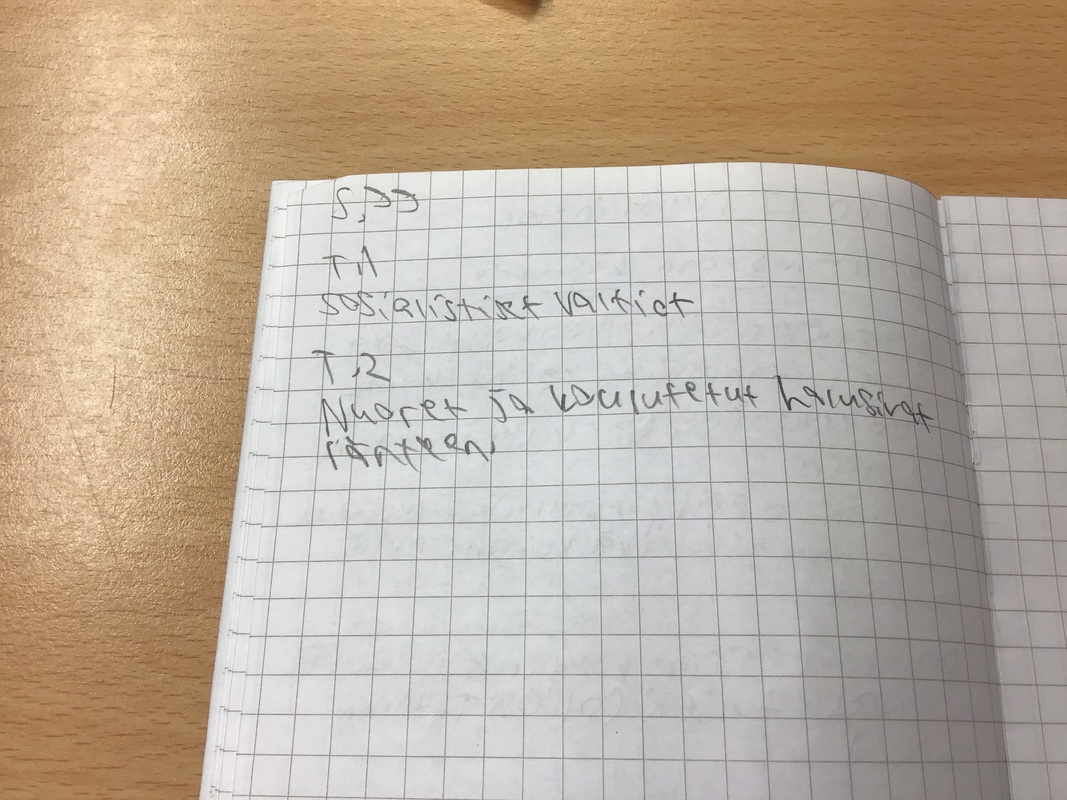 S.77
T.1
sosialistiset valtiot
T.2
Nuoret ja koulutetut halusivat
länteen.